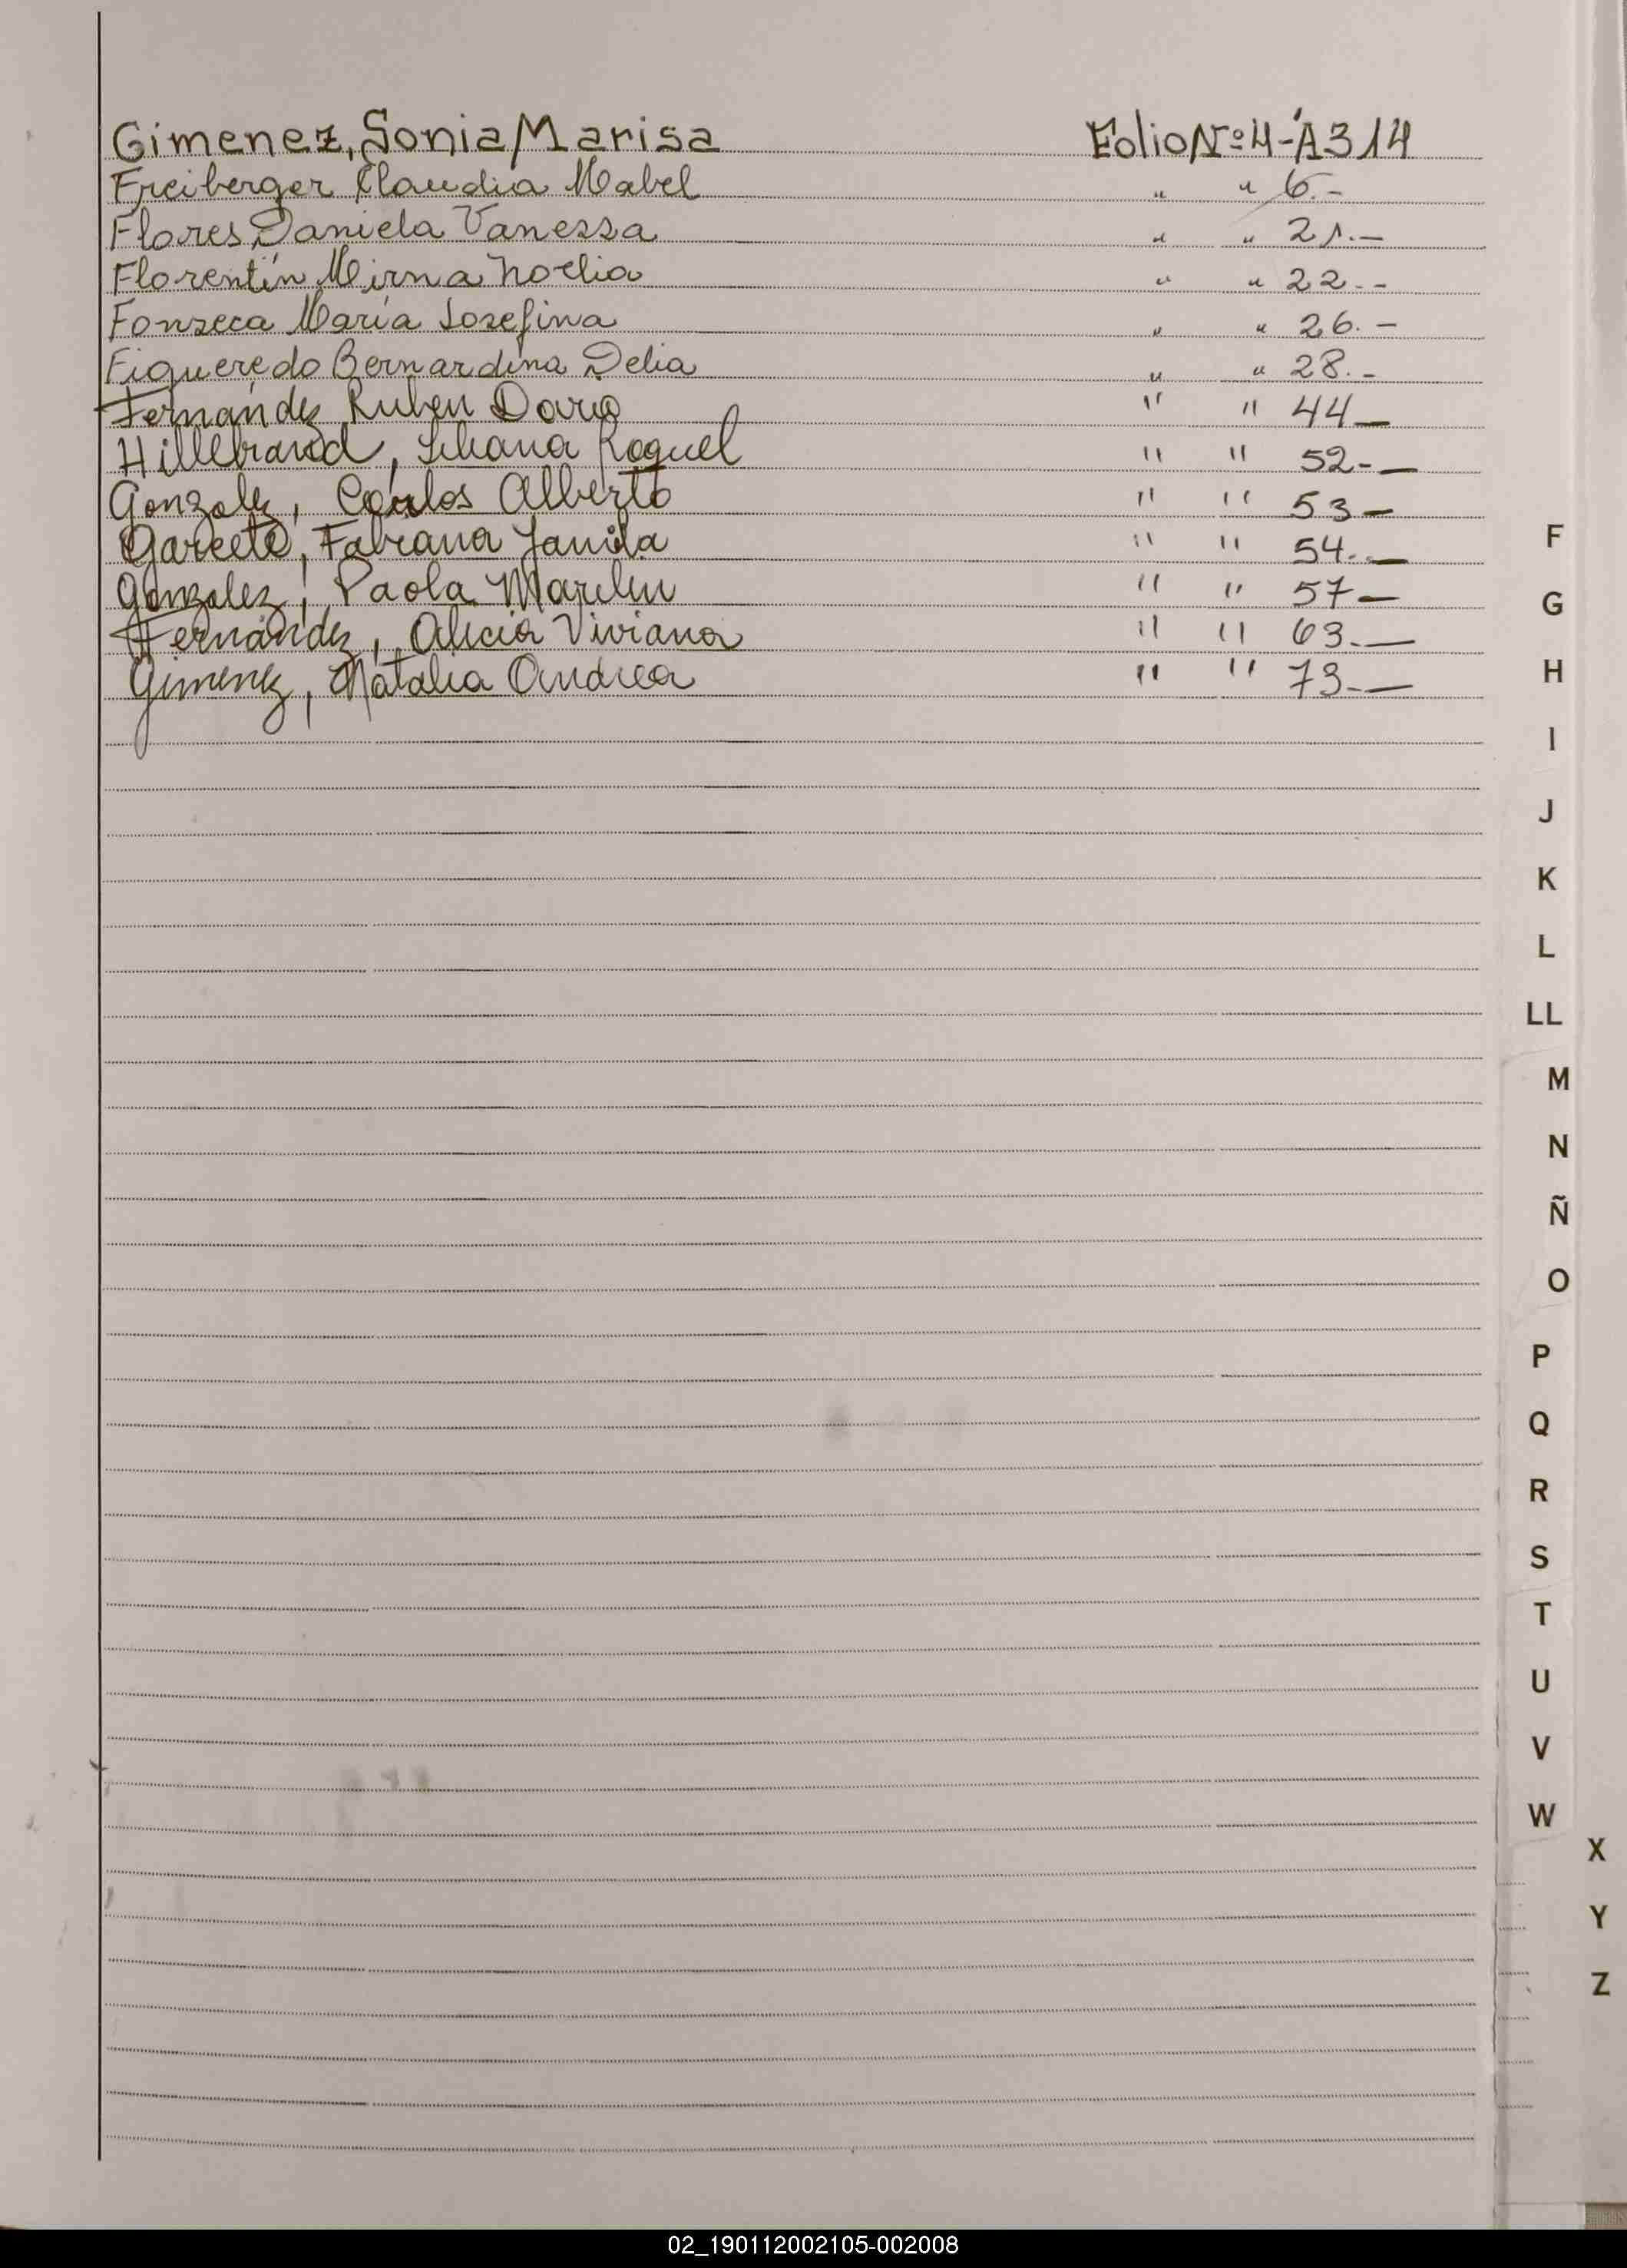 Gimenez, Sonia Marisa Folio Nº 4-A314
Freiberger Claudia Mabel " " 6.-
Flores Daniela Vanessa " " 21.-
Florentín Mirna Noelia " " 22.-
Fonseca María Josefina " " 26.-
Figueredo Bernardina Delia " " 28.-
Fernández Ruben Dario " " 44-
Hillebrand, Liliana Raquel " " 52.-
Gonzalez, Carlos Alberto " " 53-
Garcete, Fabiana " " 54.-
Gonzalez, Paola Marilin " " 57-
Fernández, Alicia Viviana " " 63.-
Gimenez, Natalia Andrea " " 73.-
F
G
H
I
J
K
L
LL
M
N
Ñ
O
P
Q
R
S
T
U
V
W
X
Y
Z
02_190112002105-002008